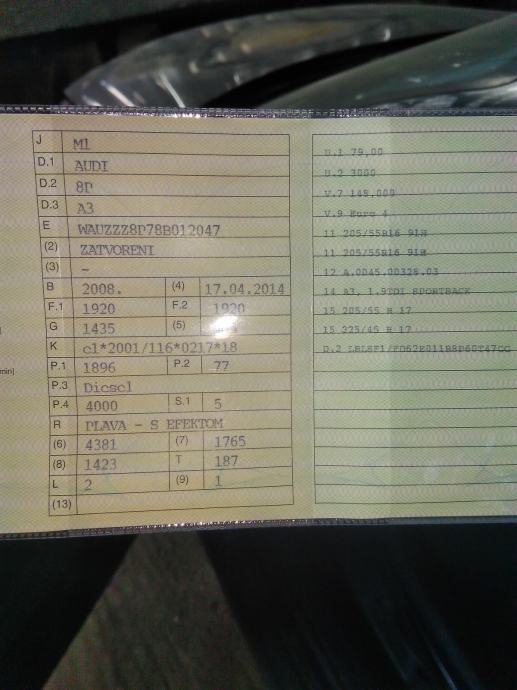 J M1
D.1 AUDI
D.2 8P
D.3 A3
E WAUZZZ8P78B012047
(2) ZATVORENI
(3) –
B 2008. (4) 17.04.2014
F.1 1920 F.2 1920
G 1435 (5)
K c1*2001/116*0217*18
P.1 1896 P.2 77
P.3 Diesel
P.4 4000 S.1 5
R PLAVA - S EFEKTOM
(6) 4381 (7) 1765
(8) 1423 T 187
L 2 (9) 1
(13)
U.1 79,00
U.2 3000
V.7 148,000
V.9 Euro 4
11 205/55R16 91H
11 205/55R16 91H
12 A.0045.00328.03
14 A3, 1.9TDI SPORTBACK
15 205/55 R 17
15 225/45 R 17
D.2